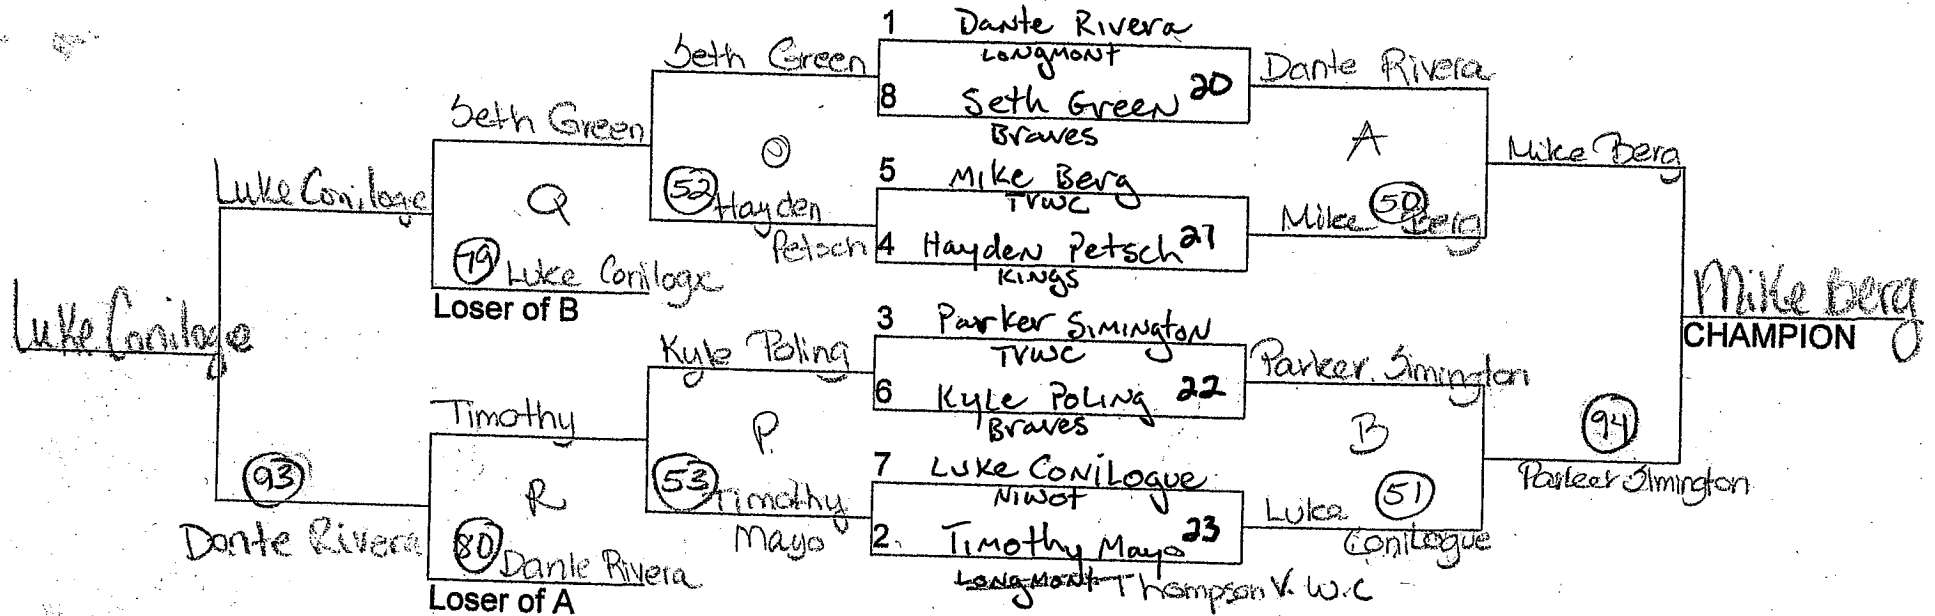 1 Dante Rivera
Longmont
8 Seth Green 20
Braves
5 Mike Berg
TVWC
4 Hayden Petsch 21
Kings
3 Parker Simington
TVWC
6 Kyle Poling 22
Braves
7 Luke Conilogue
Niwot
2. Timothy Mayo 23
Longmont Thompson V. W.C
Dante Rivera
A
50
Mike Berg
Parker Simington
B
51
Luke Conilogue
Mike Berg
94
Parker Simington
Mike Berg
CHAMPION
Seth Green
O
52
Hayden
Petsch
Kyle Poling
P.
53
Timothy
Mayo
Seth Green
Q
79 Luke Coniloge
Loser of B
Timothy
R
80 Dante Rivera
Loser of A
Luke Coniloge
93
Dante Rivera
Luke Coniloge